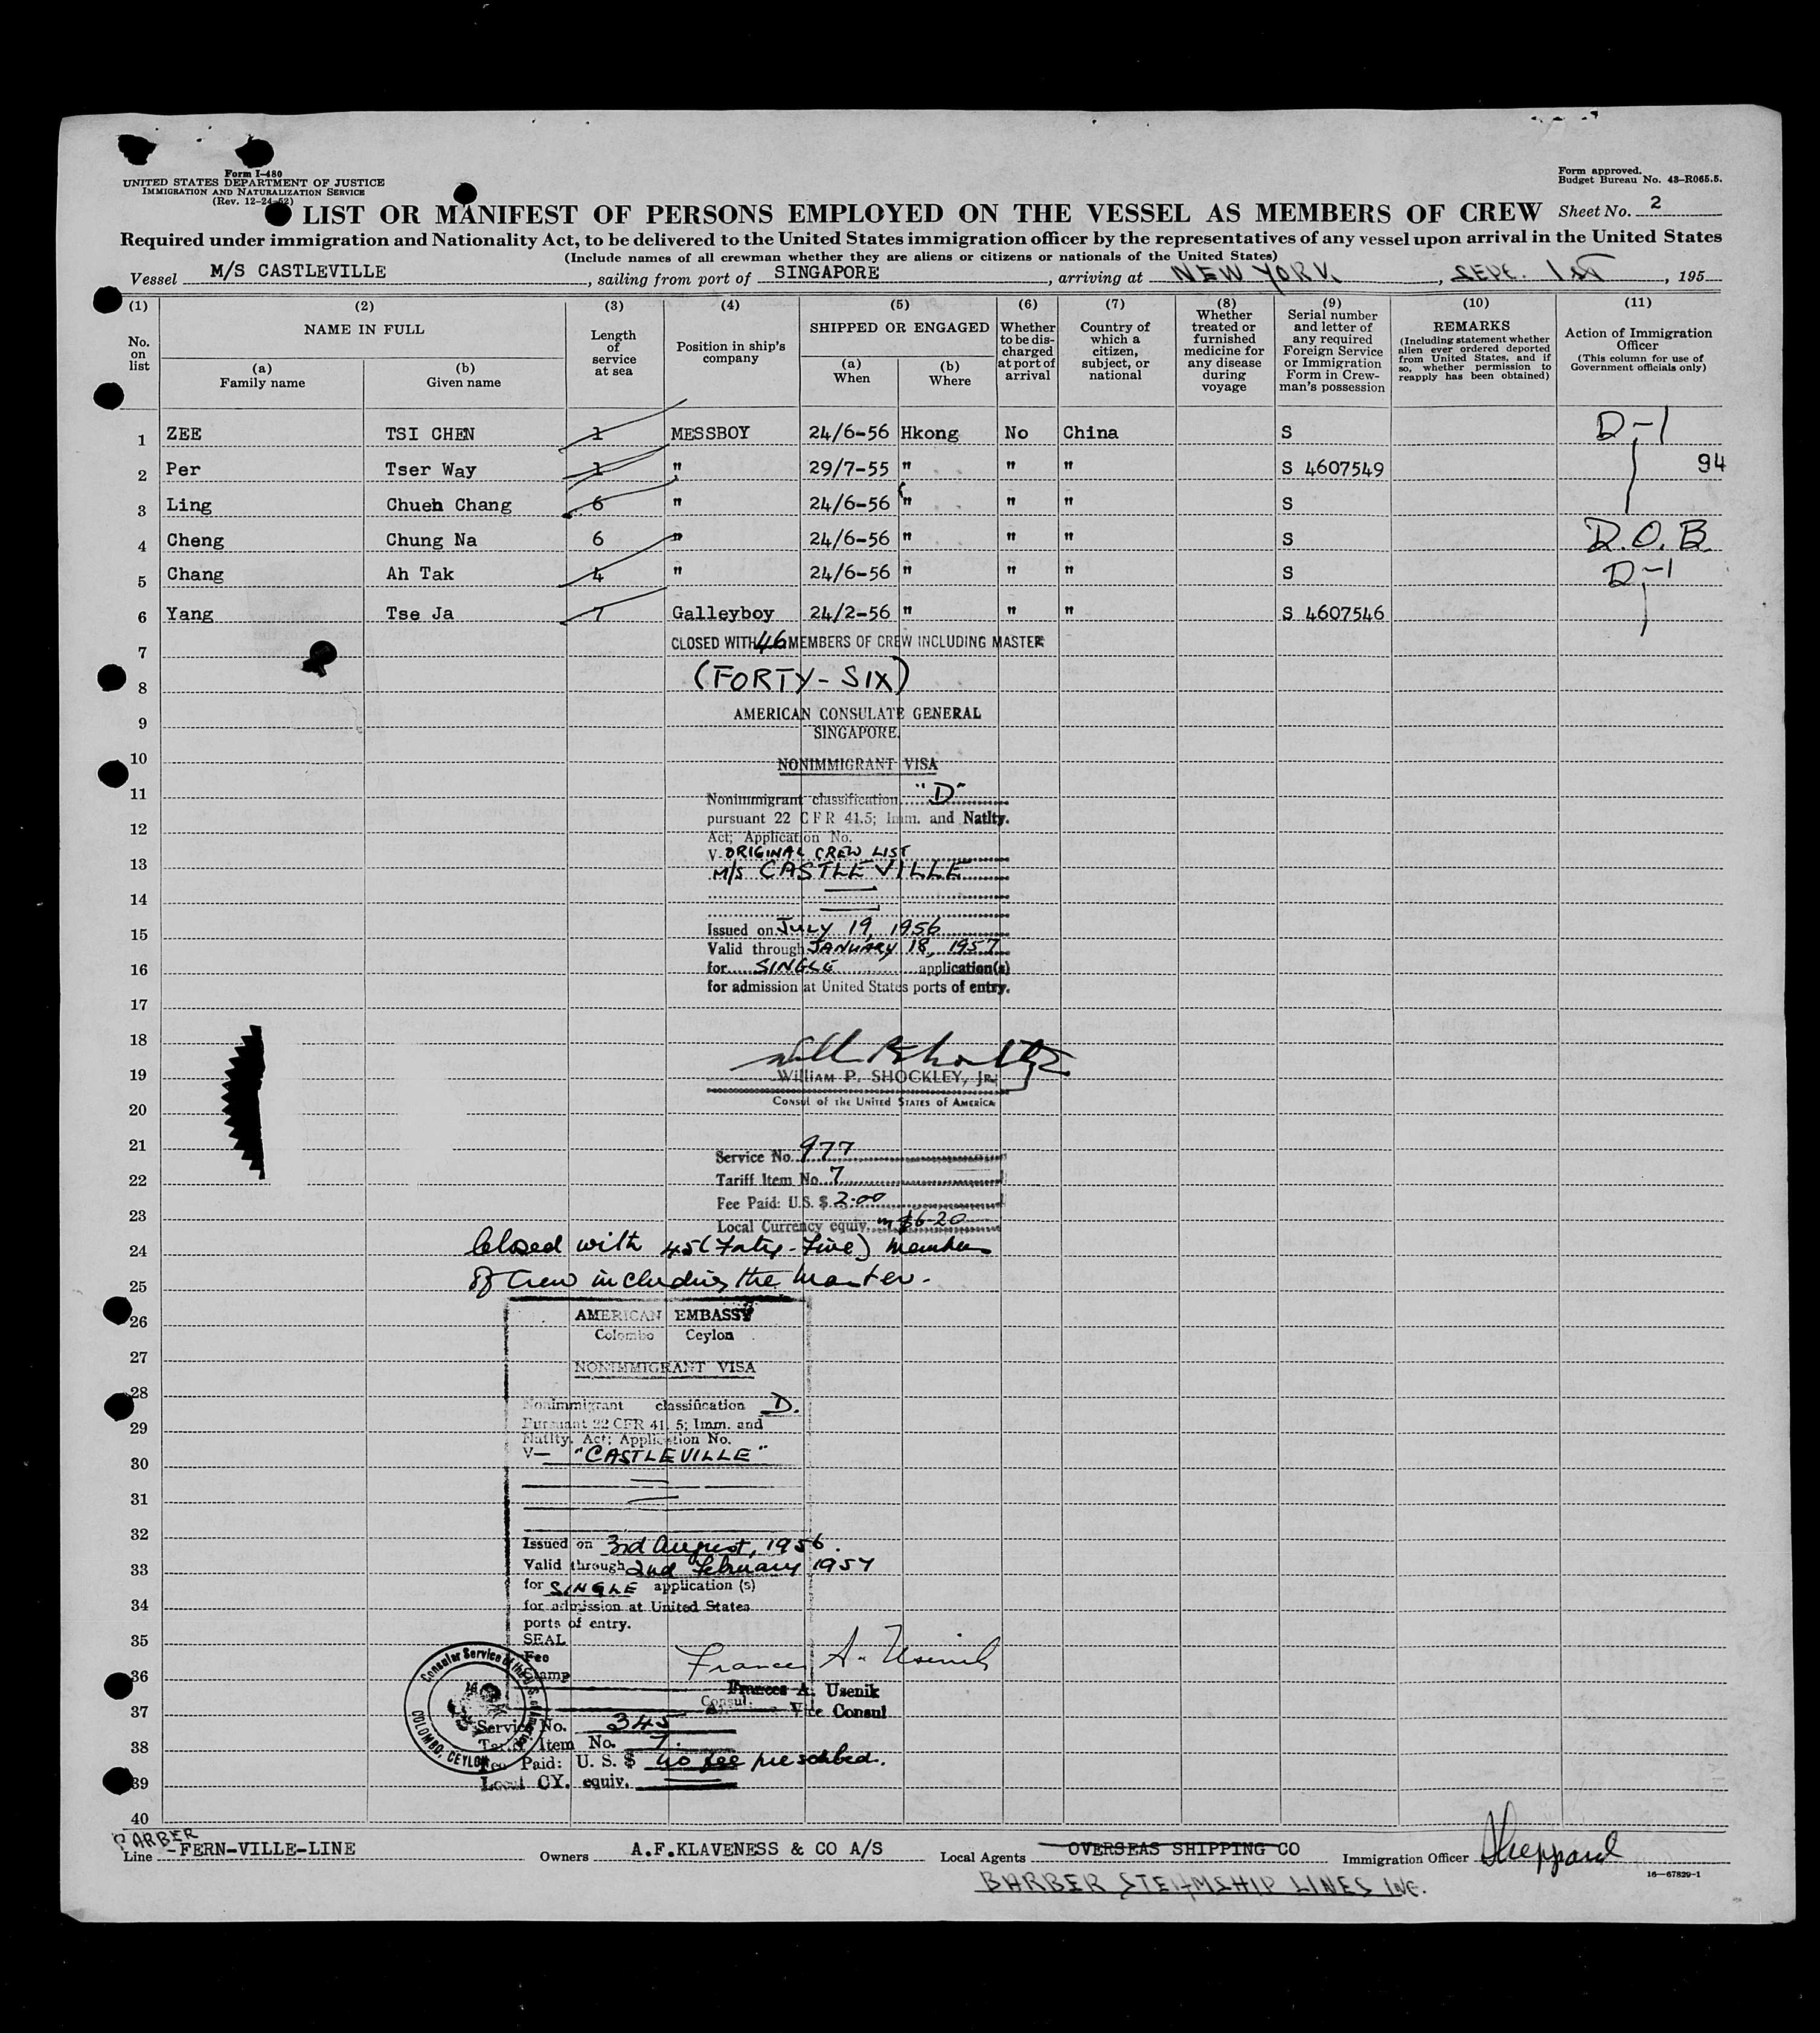 Form I-480
UNITED STATES DEPARTMENT OF JUSTICE
IMMIGRATION AND NATURALIZATION SERVICE
(Rev. 12-24-52)
Form approved.
Budget Bureau No. 43-R065.5.
LIST OR MANIFEST OF PERSONS EMPLOYED ON THE VESSEL AS MEMBERS OF CREW Sheet No. 2
Required under immigration and Nationality Act, to be delivered to the United States immigration officer by the representatives of any vessel upon arrival in the United States
(Include names of all crewman whether they are aliens or citizens or nationals of the United States)
Vessel M/S CASTLEVILLE, sailing from port of SINGAPORE, arriving at NEW YORK, SEPT. 1ST, 195
(1) (2) (3) (4) (5) (6) (7) (8) (9) (10) (11)
No. on list
NAME IN FULL
(a) Family name
(b) Given name
Length of service at sea
Position in ship's company
SHIPPED OR ENGAGED
(a) When
(b) Where
Whether to be discharged at port of arrival
Country of which a citizen, subject, or national
Whether treated or furnished medicine for any disease during voyage
Serial number and letter of any required Foreign Service or Immigration Form in Crewman's possession
REMARKS
(Including statement whether alien ever ordered deported from United States, and if so, whether permission to reapply has been obtained)
Action of Immigration Officer
(This column for use of Government officials only)
1 ZEE TSI CHEN 1 MESSBOY 24/6-56 Hkong No China S D-1
2 Per Tser Way 1 " 29/7-55 " " " S 4607549 94
3 Ling Chueh Chang 6 " 24/6-56 " " " S
4 Cheng Chung Na 6 " 24/6-56 " " " S D.O.B.
5 Chang Ah Tak 4 " 24/6-56 " " " S D-1
6 Yang Tse Ja 7 Galleyboy 24/2-56 " " " S 4607546
7 CLOSED WITH 46 MEMBERS OF CREW INCLUDING MASTER
8 (FORTY-SIX)
9 AMERICAN CONSULATE GENERAL
SINGAPORE.
10 NONIMMIGRANT VISA
11 Nonimmigrant classification "D"
pursuant 22 CFR 41.5; Imm. and Natlty.
12 Act; Application No.
V-ORIGINAL CREW LIST
13 M/S CASTLEVILLE
14
15 Issued on JULY 19, 1956
Valid through JANUARY 18, 1957
16 for SINGLE application(s)
for admission at United States ports of entry.
17
18
19 WILLIAM P. SHOCKLEY, JR.
20 CONSUL OF THE UNITED STATES OF AMERICA
21 Service No. 977
22 Tariff Item No. 7
Fee Paid: U.S. $ 2.00
23 Local Currency equiv. M $6-20
24 Closed with 45 (Forty-Five) members
25 of Crew including the Master.
26 AMERICAN EMBASSY
Colombo Ceylon
27 NONIMMIGRANT VISA
28 Nonimmigrant classification D.
29 Pursuant 22 CFR 41. 5; Imm. and
Natlty. Act; Application No.
30 V— "CASTLEVILLE"
31
32 Issued on 3rd August, 1956.
33 Valid through 2nd February 1957
for SINGLE application (s)
34 for admission at United States
ports of entry.
35 SEAL
Fee
36 Stamp
Frances A. Usenik
Frances A. Usenik
37 Consul. Vice Consul
Consular Service of the U.S. of America
COLOMBO, CEYLON
Service No. 345
38 Tariff Item No. 7.
Fee Paid: U. S. $ no fee prescribed.
39 Local CY. equiv.
40
BARBER
Line -FERN-VILLE-LINE Owners A.F.KLAVENESS & CO A/S Local Agents OVERSEAS SHIPPING CO Immigration Officer Sheppard
BARBER STEAMSHIP LINES INC.
16—67829-1